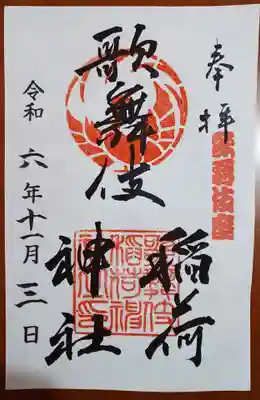 奉拝
歌舞伎座
歌舞伎
稲荷
神社
令和六年十一月三日